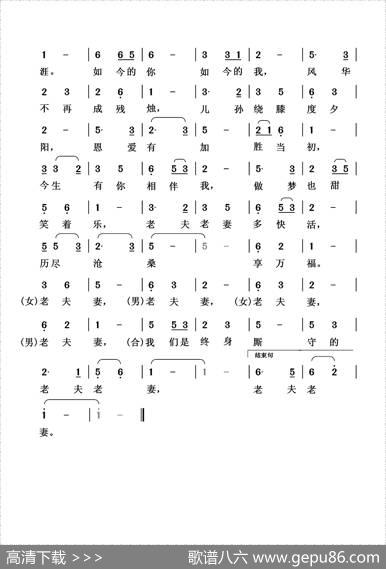 1 - | 6 6 5 | 6 - | 3 3 1 | 2 - | 5· 3 |
涯。 如 今的 你 如 今的 我, 风 华
2 3 | 2 1 | 6 - | 3· 2 | 3 5 | 6 3 |
不 再 成 残 烛, 儿 孙 绕 膝 度 夕
2 - | 5· 3 | 2· 3 | 5 5 | 2 1 6 | 1 - |
阳, 恩 爱 有 加 胜 当 初,
3 3 2 | 1 - | 6· 5 5 | 3 - | 5· 3 | 2 3 5 |
今生 有 你 相伴 我, 做 梦 也 甜
5 6 | 1 - | 3· 2 | 3 5 | 6 5 3 | 2 - |
笑 着 乐, 老 夫 老 妻 多 快 活,
5 5 3 | 2· 3 | 5 - | 5 - | 6 2 | 1 - |
历尽 沧 桑 享 万 福。
3 5 | 2 - | 3 6 | 5 - | 6 2 | 3 - |
(女)老 夫 妻, (男)老 夫 妻, (女)老 夫 妻,
6 2 | 1 - | 5 5 3 | 5 3 | 5 - | 3 2 |
(男)老 夫 妻, (合)我 们是 终 身 厮 守 的
结束句
2· 1 | 5 6 | 1 - | 1 - | 6· 5 | 6 2 |
老 夫 老 妻, 老 夫 老
1 - | 1 - ‖
妻。
高清下载 >>>
歌谱八六 www.gepu86.com